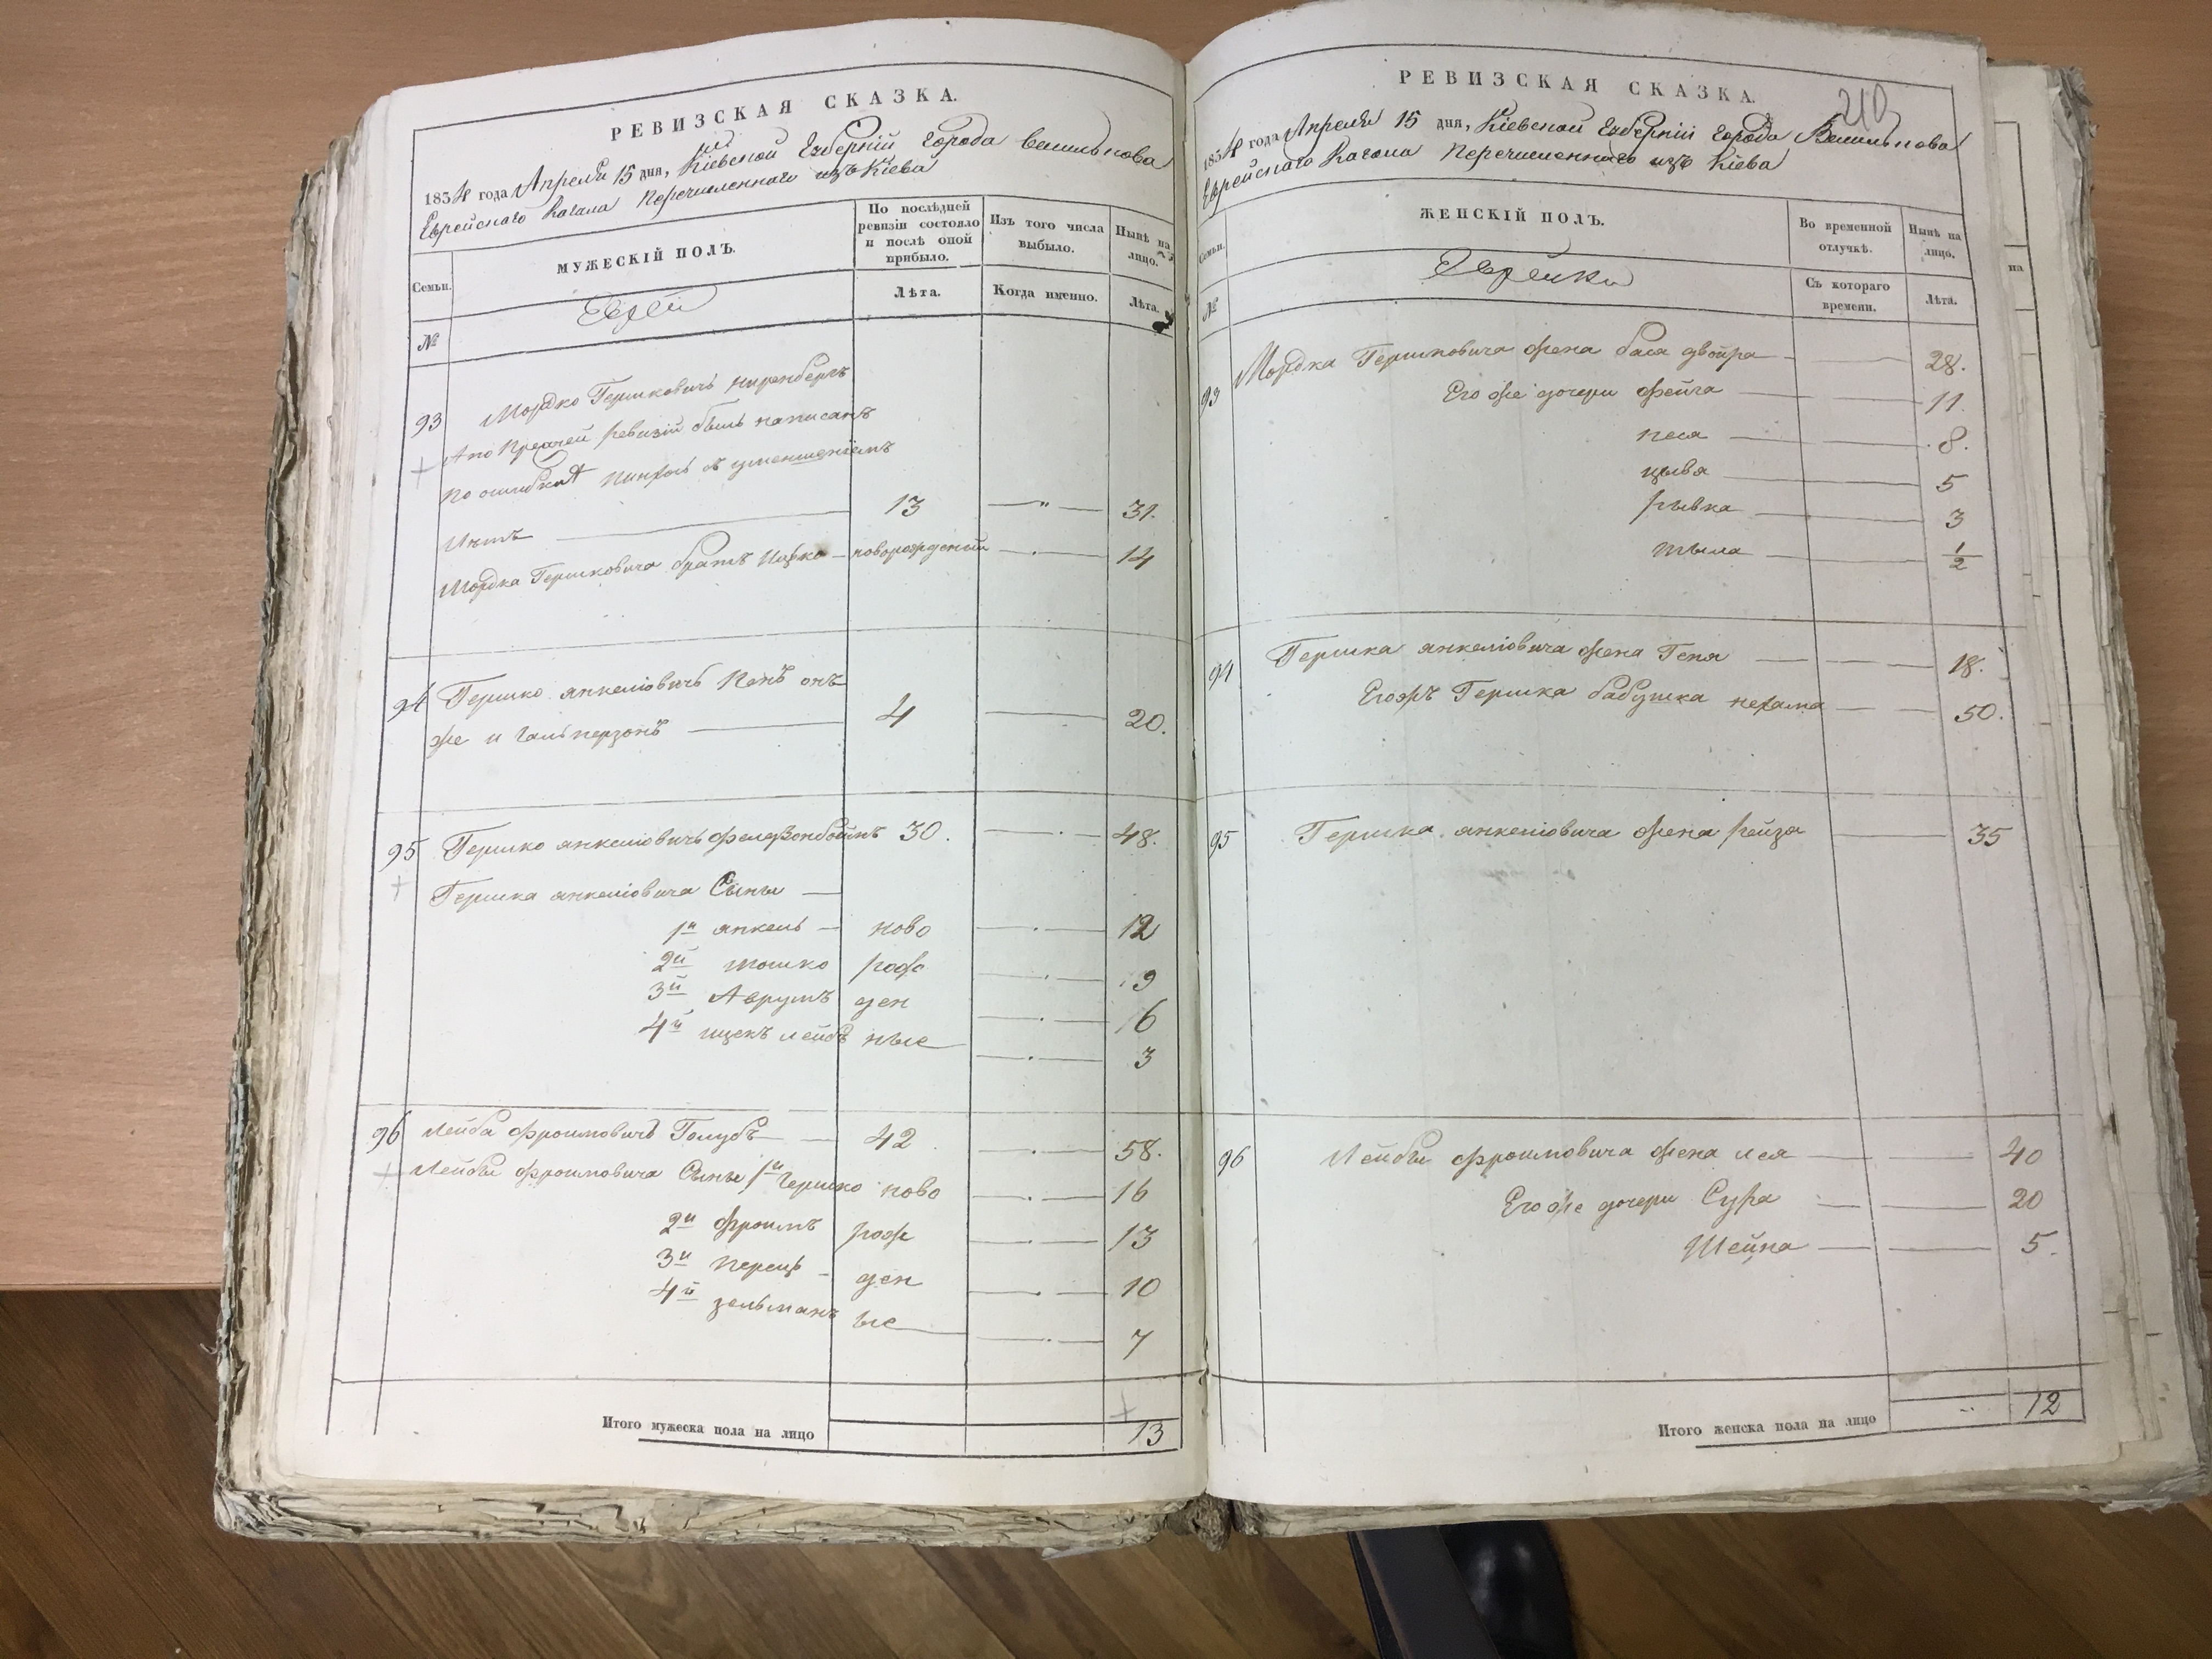 РЕВИЗСКАЯ СКАЗКА.
1834 года Апреля 15 дня, Кіевской Губерніи города Василькова
Еврейскаго Кагала Перечисленнаго изъ Кіева
Семьи.
МУЖЕСКІЙ ПОЛЪ.
По последней ревизіи состояло и после оной прибыло.
Изъ того числа выбыло.
Ныне на лицо.
Лѣта.
Когда именно.
Лѣта.
№
Евреи
93 Мордко Гершковичъ Ниренбергъ
А по Прежней ревизіи былъ написанъ
по ошибки Пинхось съ уменшеніемъ
Летъ 13 31.
Мордка Гершковича братъ Ицко новорожденый 14
94 Гершко янкеліовичъ Кенъ онъ
же и Гальперзонъ 4 20.
95 Гершко янкеліовичъ 30. 48.
Гершка янкеліовича Сыны
1й янкель ново 12
2й мошко рож 9
3й Аврумъ ден 6
4й ицекъ лейбъ ные 3
96 Лейба Фроимовичъ Голубъ 42 58.
Лейбы Фроимовича Сыны 1й Гершко ново 16
2й Фроимъ рож 13
3й перецъ ден 10
4й зельманъ ые 7
Итого мужеска пола на лицо 13
210
РЕВИЗСКАЯ СКАЗКА.
1834 года Апреля 15 дня, Кіевской Губерніи города Василькова
Еврейскаго Кагала Перечисленнаго изъ Кіева
Семьи.
ЖЕНСКІЙ ПОЛЪ.
Во временной отлучкѣ.
Ныне на лицо.
Съ котораго времени.
Лѣта.
№
Еврейки
93 Мордка Гершковича жена бася двойра 28.
Его же дочери фейга 11.
песя 8.
цывя 5
рывка 3
1/2
94 Гершка янкеліовича жена Геня 18.
Егожъ Гершка бабушка нехама 50.
95 Гершка янкеліовича жена рейза 35
96 Лейбы Фроимовича жена лея 40
Его же дочери Сура 20
Шейна 5.
Итого женска пола на лицо 12
на